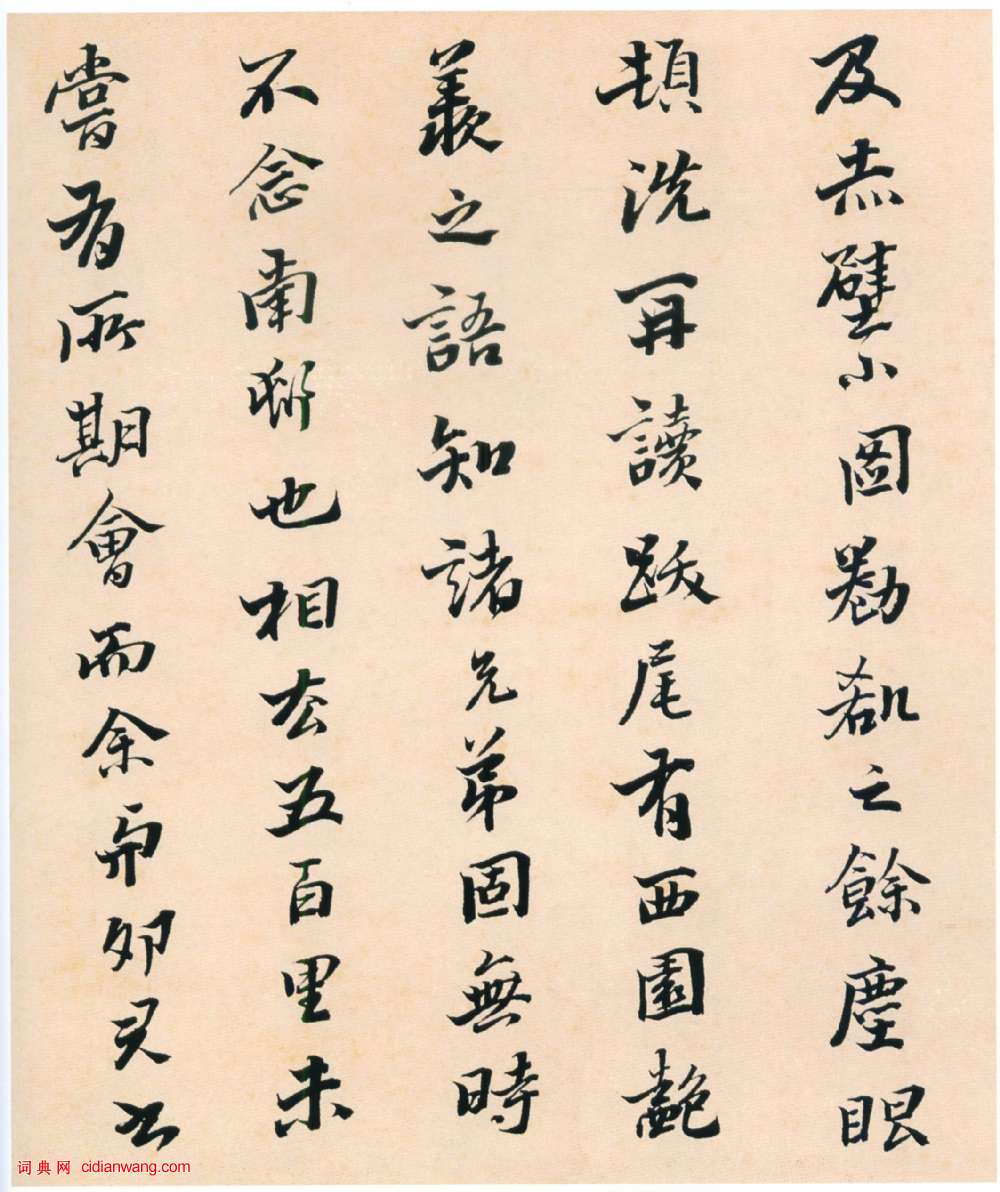 及赤壁小圖勌谻之餘塵眼
頓洗再讀跋尾有西園艷
羨之語知諸兄弟固無時
不念南邨也相去五百里未
嘗有所期會而余卯君
词典网 cidianwang.com